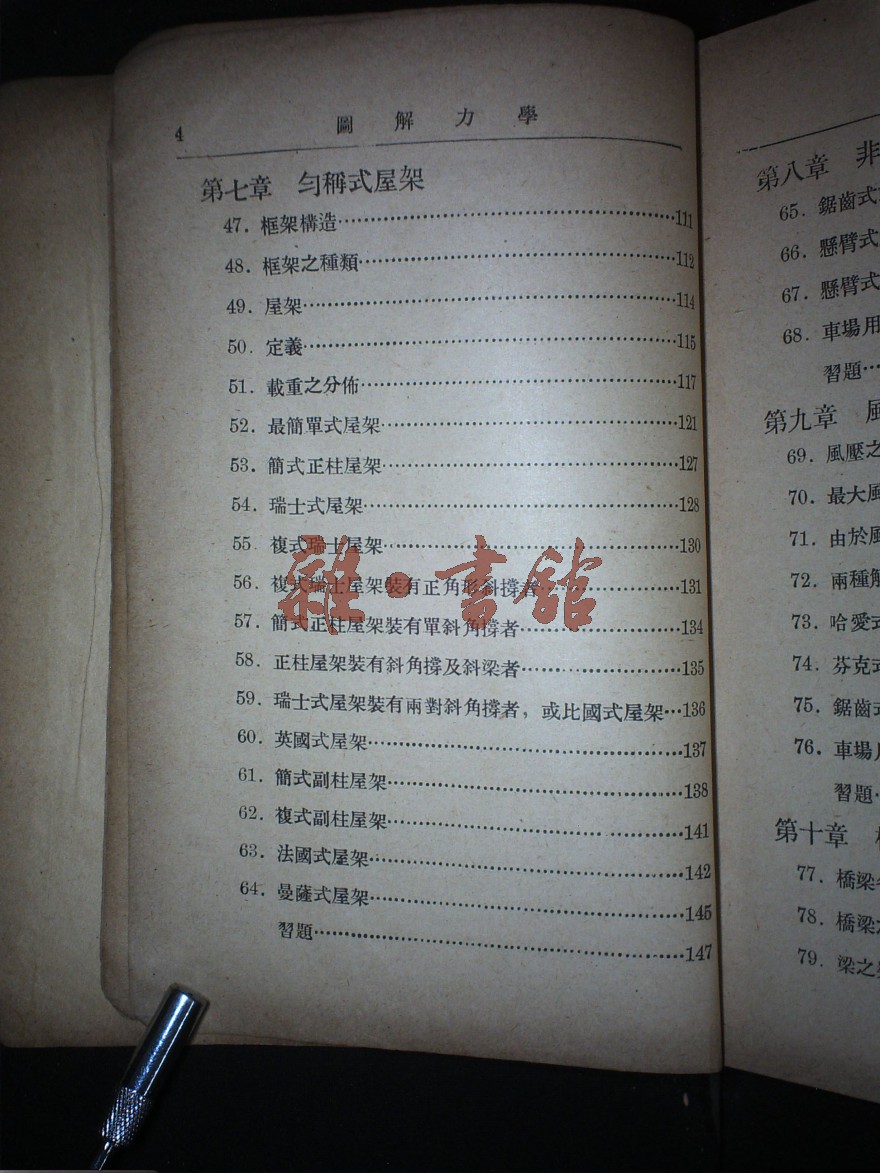 4 圖解力學
第七章 勻稱式屋架
47. 框架構造……111
48. 框架之種類……112
49. 屋架……114
50. 定義……115
51. 載重之分佈……117
52. 最簡單式屋架……121
53. 簡式正柱屋架……127
54. 瑞士式屋架……128
55 複式瑞士屋架……130
56. 複式瑞士屋架裝有正角形斜撐者……131
57. 簡式正柱屋架裝有單斜角撐者……134
58. 正柱屋架裝有斜角撐及斜梁者……135
59. 瑞士式屋架裝有兩對斜角撐者，或比國式屋架…136
60. 英國式屋架……137
61. 簡式副柱屋架……138
62. 複式副柱屋架……141
63. 法國式屋架……142
64. 曼薩式屋架……145
習題……147
雜·書館
第八章 非
65. 鋸齒式
66. 懸臂式
67. 懸臂式
68. 車場用
習題…
第九章 風
69. 風壓之
70. 最大風
71. 由於風
72. 兩種解
73. 哈愛式
74. 芬克式
75. 鋸齒式
76. 車場用
習題
第十章
77. 橋梁
78. 橋梁
79. 梁之